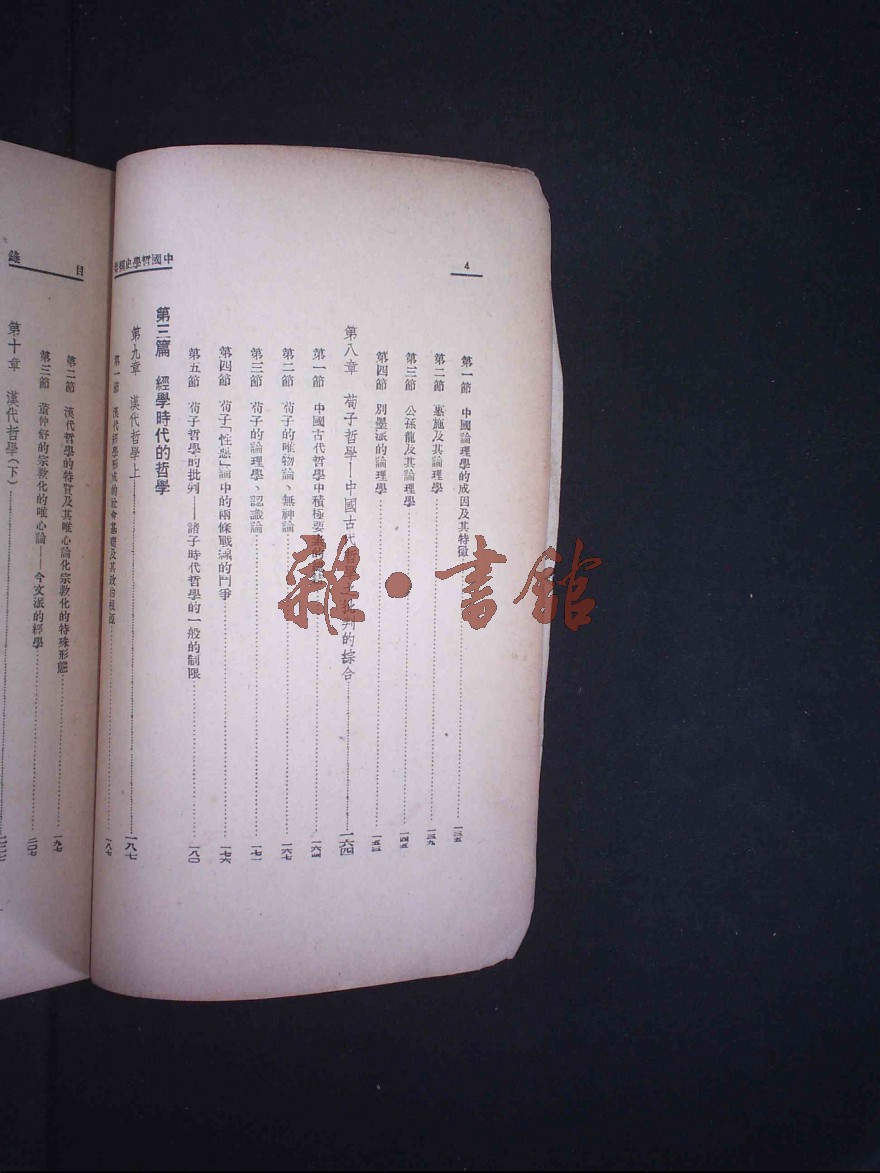 4
中國哲學史綱要
第一節 中國論理學的成因及其特徵 一三五
第二節 惠施及其論理學 一三九
第三節 公孫龍及其論理學 一四五
第四節 別墨派的論理學 一五三
第八章 荀子哲學—中國古代哲學 批判的綜合 一六四
第一節 中國古代哲學中積極要素的 一六四
第二節 荀子的唯物論、無神論 一六七
第三節 荀子的論理學、認識論 一七一
第四節 荀子「性惡」論中的兩條戰線的鬥爭 一七六
第五節 荀子哲學的批判——諸子時代哲學的一般的制限 一八〇
第三篇 經學時代的哲學
第九章 漢代哲學上 一八七
第一節 漢代哲學形成的社會基礎及其政治根源 一八七
目錄
第二節 漢代哲學的特質及其唯心論化宗教化的特殊形態 一九七
第三節 董仲舒的宗教化的唯心論——今文派的經學 二〇七
第十章 漢代哲學(下)
雜·書館